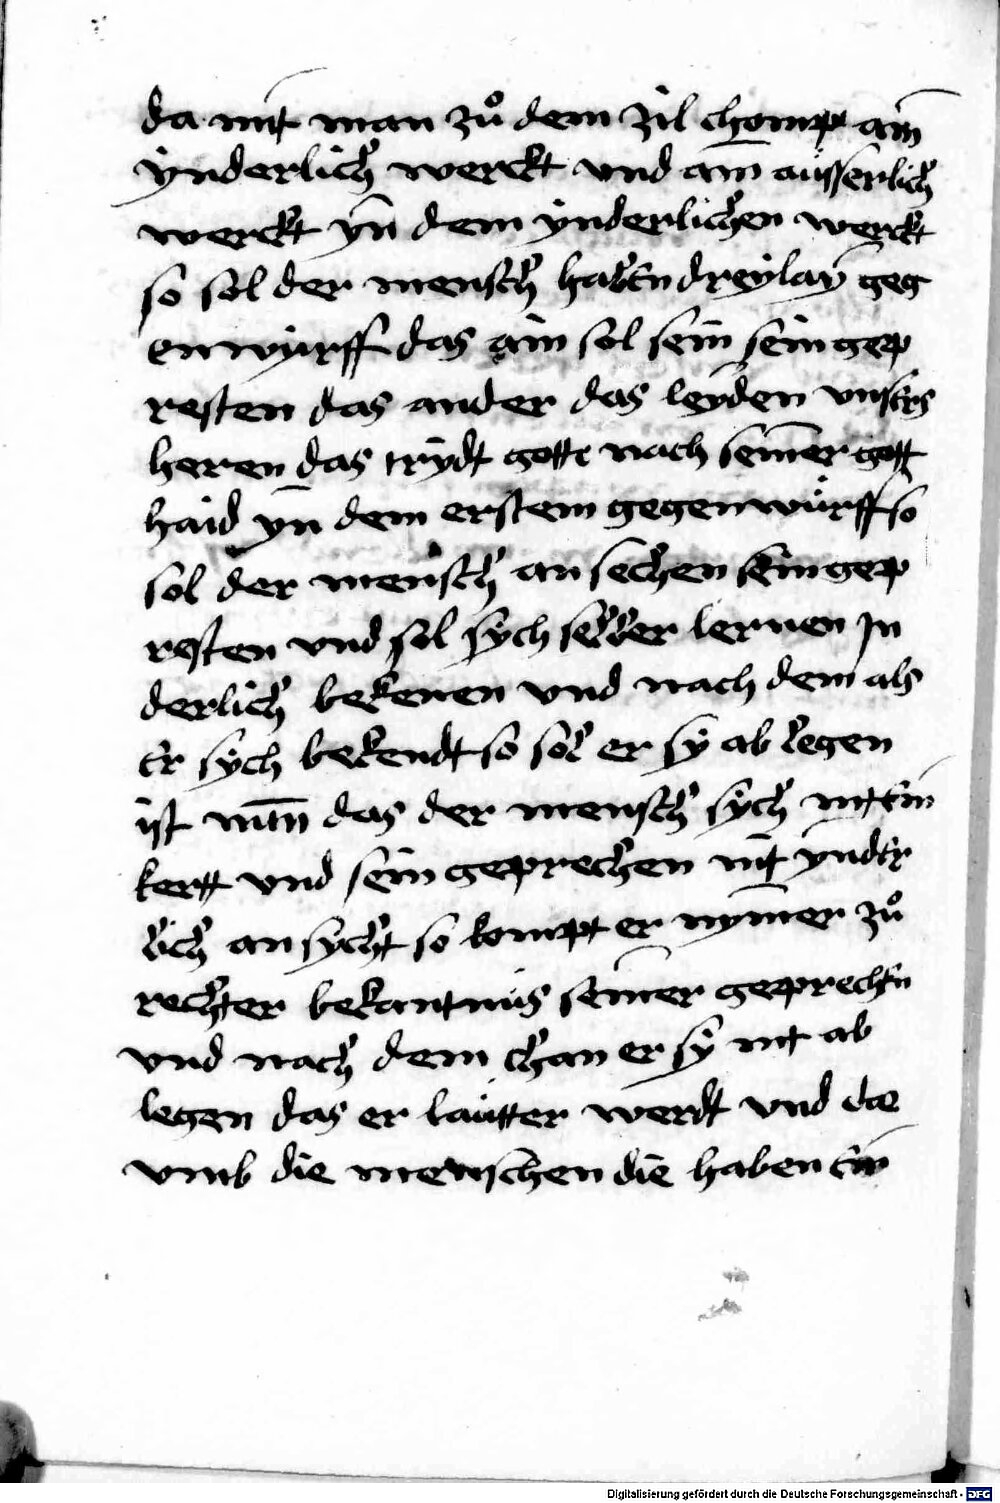 da mit man zů dem zil chompt aim̄
ÿnderlich werckt vnd am̄ aüsserlich
werckt yn̄ dem ÿnderlichen werckt
so sol der mensch haben dreÿlaÿ geg
enwürff das ain sol sein sein gep
resten das ander das leyden vnsers
heren das trÿdt gotte nach seiner gott
haid yn̄ dem erstem gegenwürff so
sol der mensch an sechen sein gep
resten vnd sol sÿch selber lernen In
derlich bekenen vnd nach dem als
er sÿch bekendt so sol er sÿ ab legen
ist das der mensch sÿch nit ein
kertt vnd sein geprechen nit ÿnder
lich an sÿcht so kompt er nym̄er zů
rechter bekantnüs seiner geprechen
vnd nach dem chan er sÿ nit ab
legen das er laütter werdt vnd da
vmb die menschen die haben ein
Digitalisierung gefördert durch die Deutsche Forschungsgemeinschaft - DFG